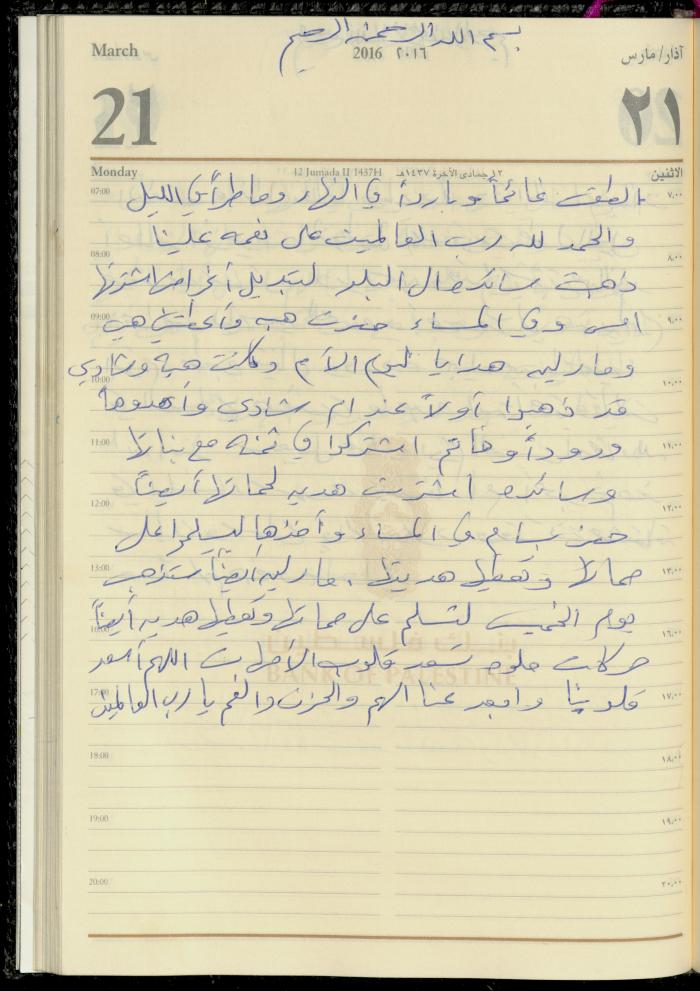 بسم الله الرحمن الرحيم
March
2016 ٢٠١٦
آذار/مارس
21
٢١
Monday
12 Jumada II 1437H
١٢ جمادى الآخرة ١٤٣٧هـ
الاثنين
07:00 الطقس غائماً وبارداً في النهار وماطراً في الليل ٧,٠٠
والحمد لله رب العالمين على نعمه علينا
08:00 ٨,٠٠
ذهبت سائده الى البلد لتبديل أغراض اشترتها
09:00 امس وفي المساء حضرت هبه وأعطتني هي ٩,٠٠
ومارليه هدايا ليوم الأم وكانت هبة وشادي
10:00 ١٠,٠٠
قد ذهبوا أولاً عند ام شادي وأهدوها
11:00 وروداً وخاتم اشتركوا في ثمنه مع بناتها ١١,٠٠
وسائده اشترت هديه لحماتها أيضاً
12:00 ١٢,٠٠
حضر بسام في المساء وأخذها ليسلموا على
13:00 حماتها وتعطيها هديتها . مارليه ايضاً ستذهب ١٣,٠٠
يوم الخميس لتسلم على حماتها وتعطيها هديه أيضاً
16:00 ١٦,٠٠
حركات حلوه تسعد قلوب الأمهات اللهم أسعد
بنك فلسطين
BANK OF PALESTINE
17:00 قلوبنا وابعد عنا الهم والحزن والغم يا رب العالمين ١٧,٠٠
18:00 ١٨,٠٠
19:00 ١٩,٠٠
20:00 ٢٠,٠٠